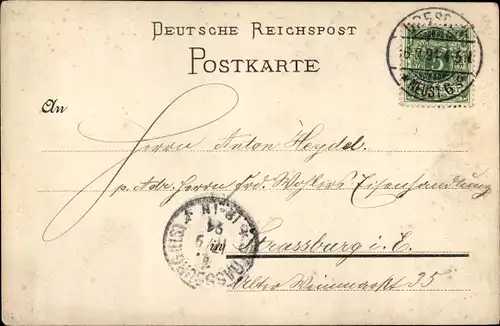 DEUTSCHE REICHSPOST
POSTKARTE
An
Herrn Anton Heydel
p. Adr. Herrn Frd. Wohlers Eisenhandlung
in Strassburg i. E.
Alter Weinmarkt 35
5